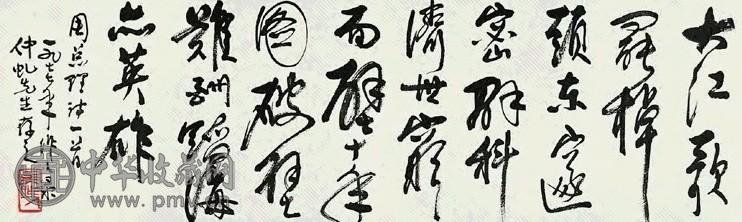 大江歌
罷掉
頭东邃
密群科
濟世窮
面壁十年
圖破壁
難酬蹈海
亦英雄
周总理诗一首
一九七七年
仲虬先生存之
中华收藏网